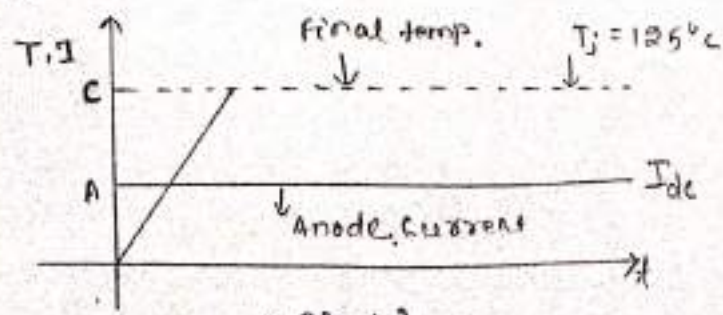 T,I
Final temp.
Tj = 125°C
C
A
Idc
Anode Current
t